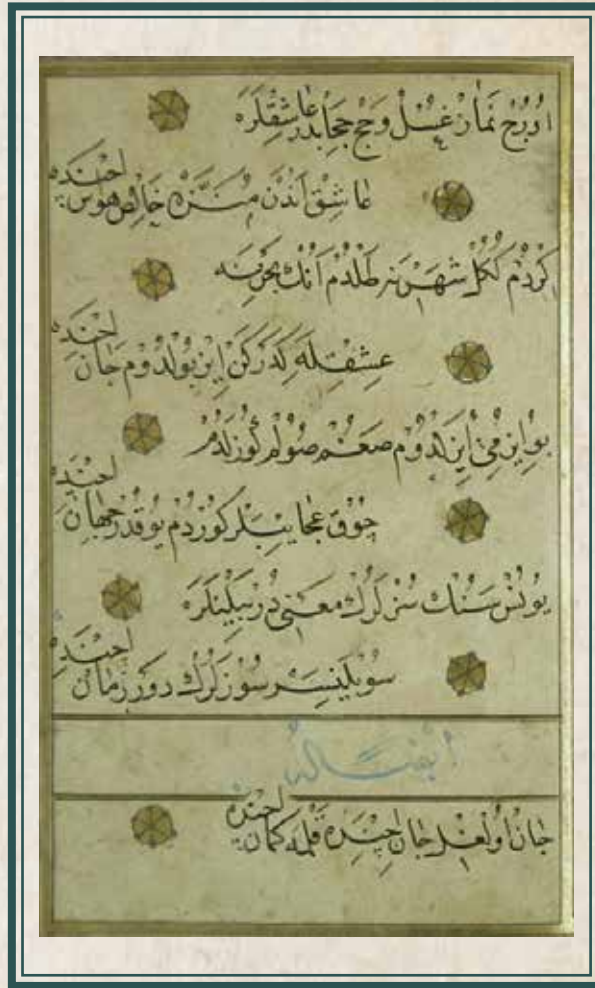 اورج نماز غسل و حج حجابدر عاشقلره
عاشق اندن منزه خالص هوس اچنده
كردم ككل شهرينه طلدم انك بحرينه
عشقله كدركن ايز بولدوم جان اچنده
بو ايزمى ايزلدوم صاغم صولم كوزلدم
چوق عجايبلر كوردم يوقدر جهان اچنده
يونس سنك سزلرك معنى در بيلينلره
سويلينسر سوزلرك دور زمان اچنده
ايضا له
جان اولغل جان اچنده قلمه كمان اچنده